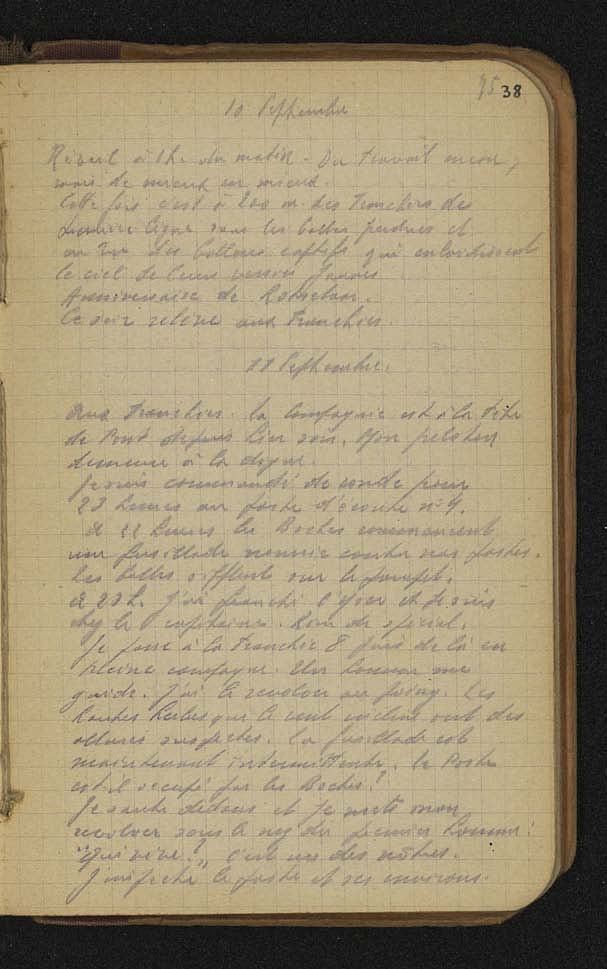 95 38
10 Septembre
Réveil à 1h. du matin. Du travail encore,
mais de mieux en mieux.
Cette fois c'est à 200 m. des tranchées de
première ligne sous les balles perdues et
en vue des ballons captifs qui
le ciel de leurs vessies jaunes
Anniversaire de
Ce soir relève aux tranchées.
11 Septembre.
Aux tranchées. la Compagnie est à la Tête
de Pont depuis hier soir. Mon peloton
demeure à la digue.
Je suis commandé de ronde pour
23 heures au poste d'écoute n° 4.
à 22 heures les Boches commencent
une fusillade nourrie contre nos postes.
Les balles sifflent sur le parapet.
à 23 h. j'ai franchi l'Yser et je suis
chez le capitaine. Rien de spécial.
Je passe à la tranchée 8 puis de là en
pleine campagne. Un homme me
guide. J'ai le revolver au poing. Les
hautes herbes que le vent incline ont des
allures suspectes. la fusillade est
maintenant intermittente. le Poste
est-il occupé par les Boches?
Je saute dedans et je mets mon
revolver sous le nez du premier homme:
"Qui vive?" c'est un des nôtres.
J'inspecte le poste et ses environs.